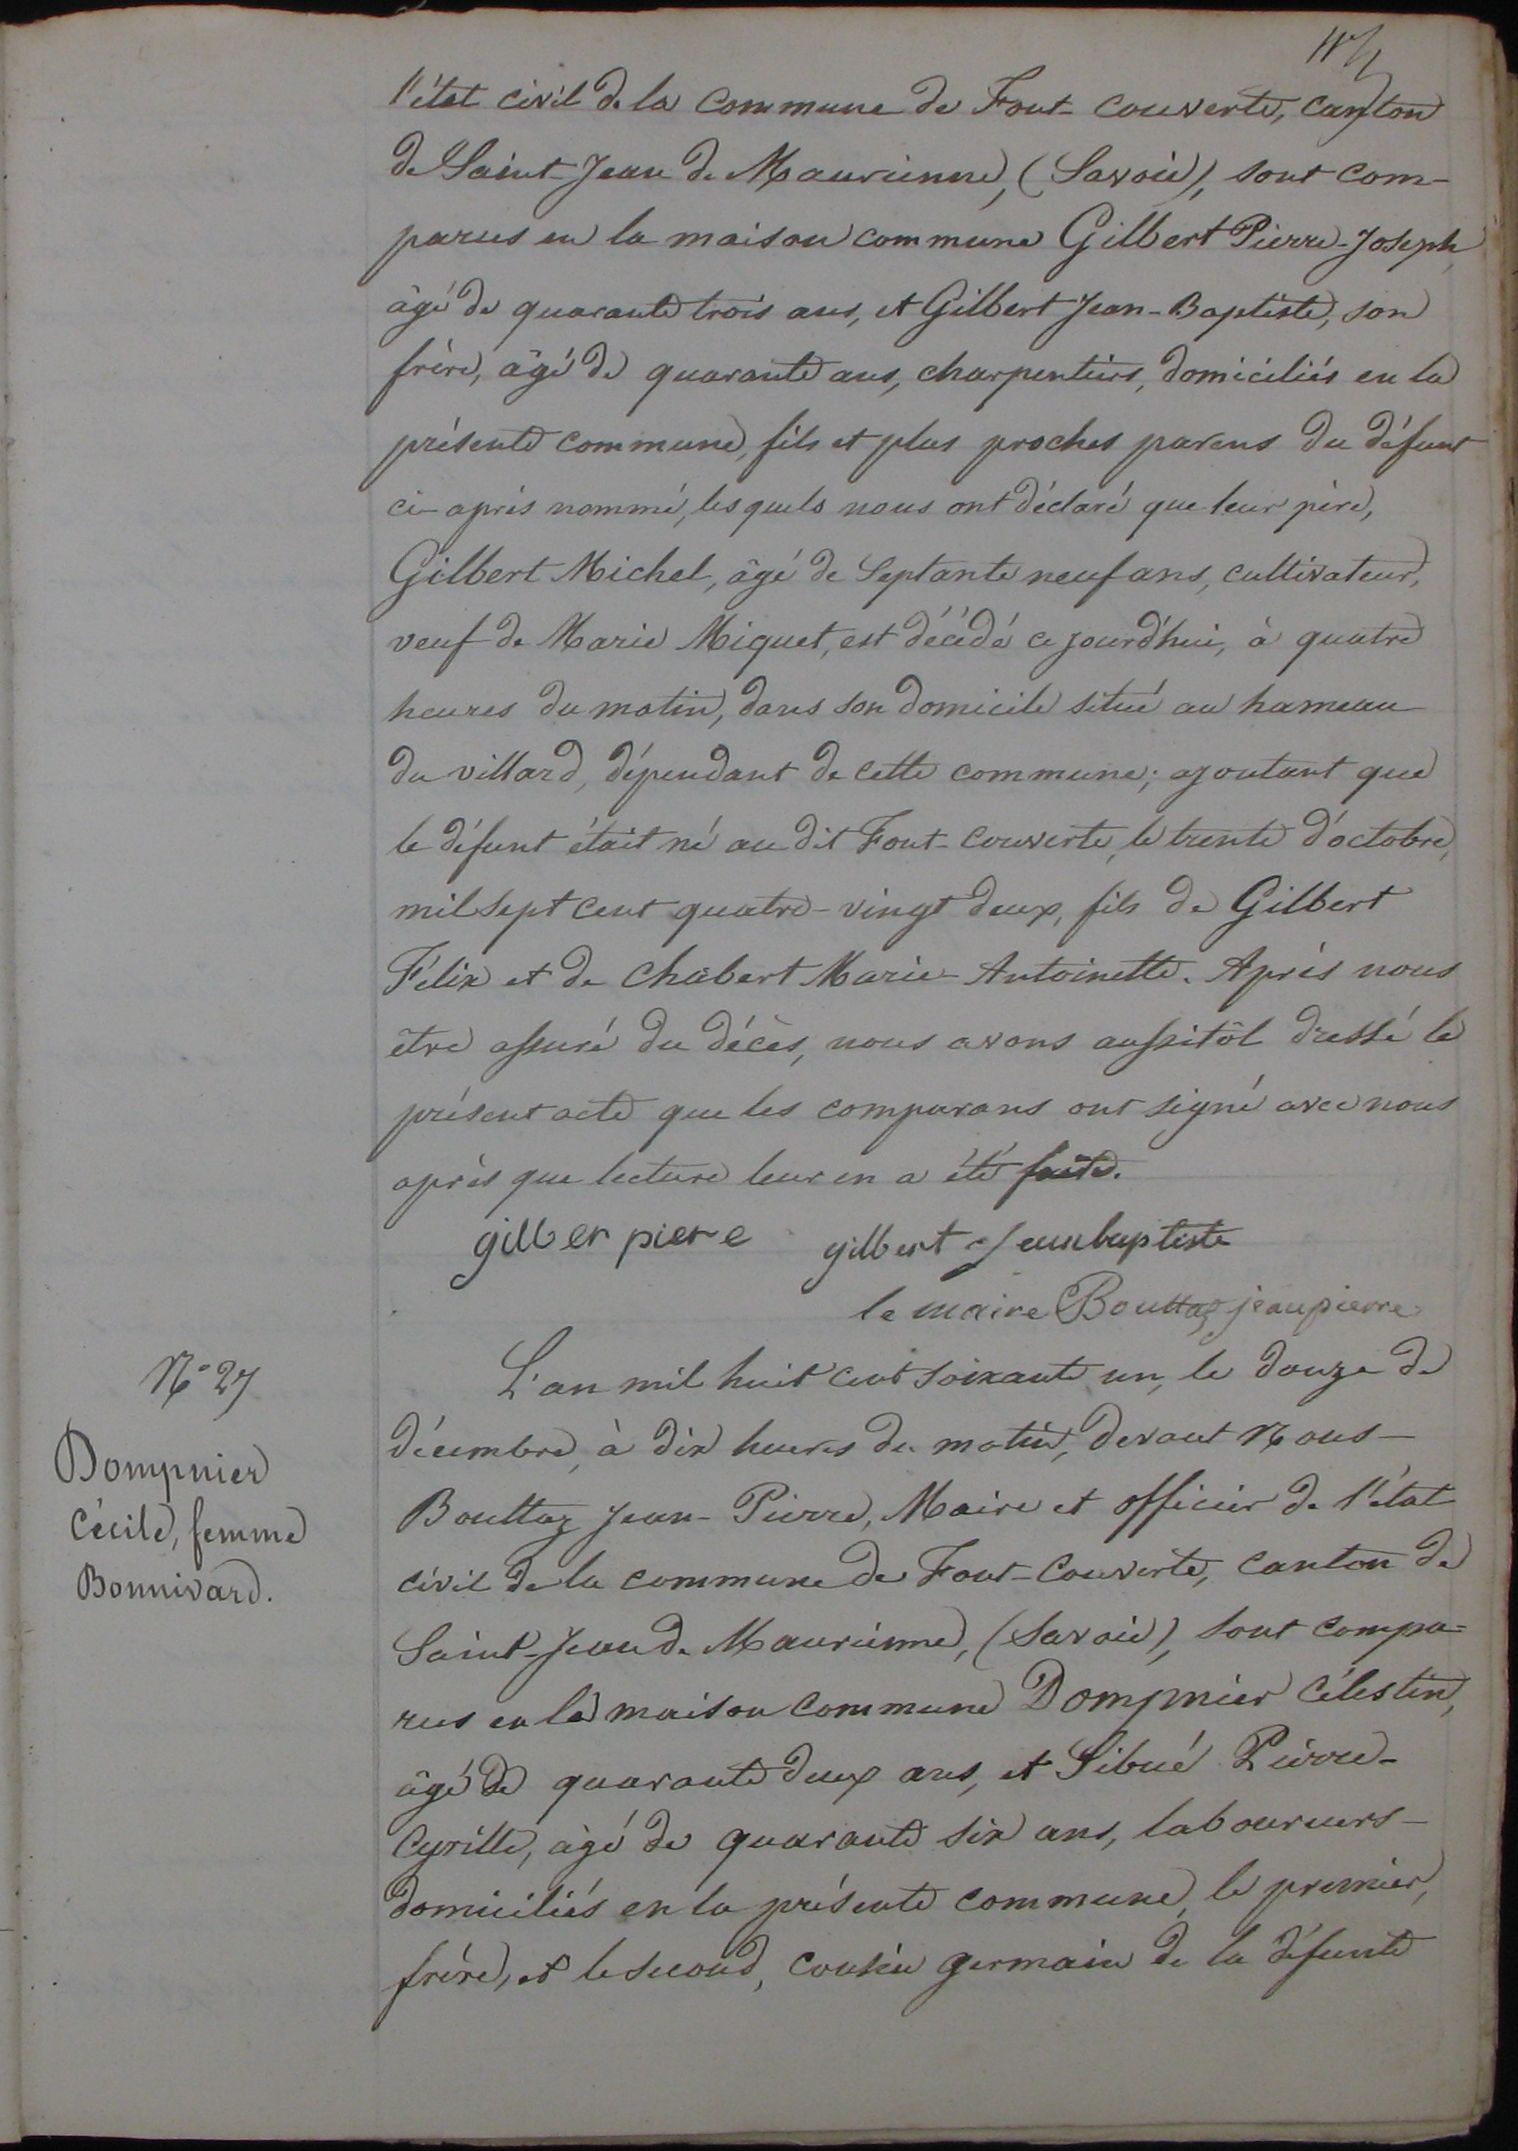 l'état civil de la commune de Font-couverte, canton
de Saint Jean de Maurienne, (Savoie), sont com-
parus en la maison commune Gilbert Pierre-Joseph,
âgé de quarante trois ans, et Gilbert Jean-Baptiste, son
frère, âgé de quarante ans, charpentiers, domiciliés en la
présente commune, fils et plus proches parens du défunt
ci-après nommé, lesquels nous ont déclaré que leur père,
Gilbert Michel, âgé de Septante neuf ans, cultivateur,
veuf de Marie Miquet, est décédé ce jourd'hui, à quatre
heures du matin, dans son domicile situé au hameau
du villard, dépendant de cette commune; ajoutant que
le défunt était né au dit Font-couverte, le trente d'octobre,
mil sept cent quatre-vingt deux, fils de Gilbert
Félix et de Chabert Marie-Antoinette. Après nous
être assuré du décès, nous avons aussitôt dressé le
présent acte que les comparans ont signé avec nous
après que lecture leur en a été faite.
gilber piere gilbert Jeanbaptiste
le maire Bouttaz jeanpierre
N° 27
Dompnier
Cécile, femme
Bonnivard.
L'an mil huit cent soixante un, le douze de
décembre, à dix heures du matin, devant Nous
Bouttaz Jean-Pierre, Maire et officier de l'état
civil de la commune de Font-Couverte, canton de
Saint-Jean de Maurienne, (Savoie), sont compa-
rus en la maison commune Dompnier Célestin,
âgé de quarante deux ans, et Sibué Pierre-
Cyrille, âgé de quarante six ans, laboureurs
domiciliés en la présente commune, le premier,
frère, et le second, cousin germain de la défunte